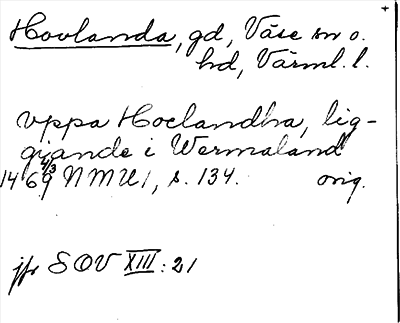 Hovlanda, gd, Väse sn o.
hd, Värml. l.
vppa Hoelandha, lig-
giande i Wermaland
1469 4/3 NMU 1, s. 134. orig.
jfr SOV XIII: 21